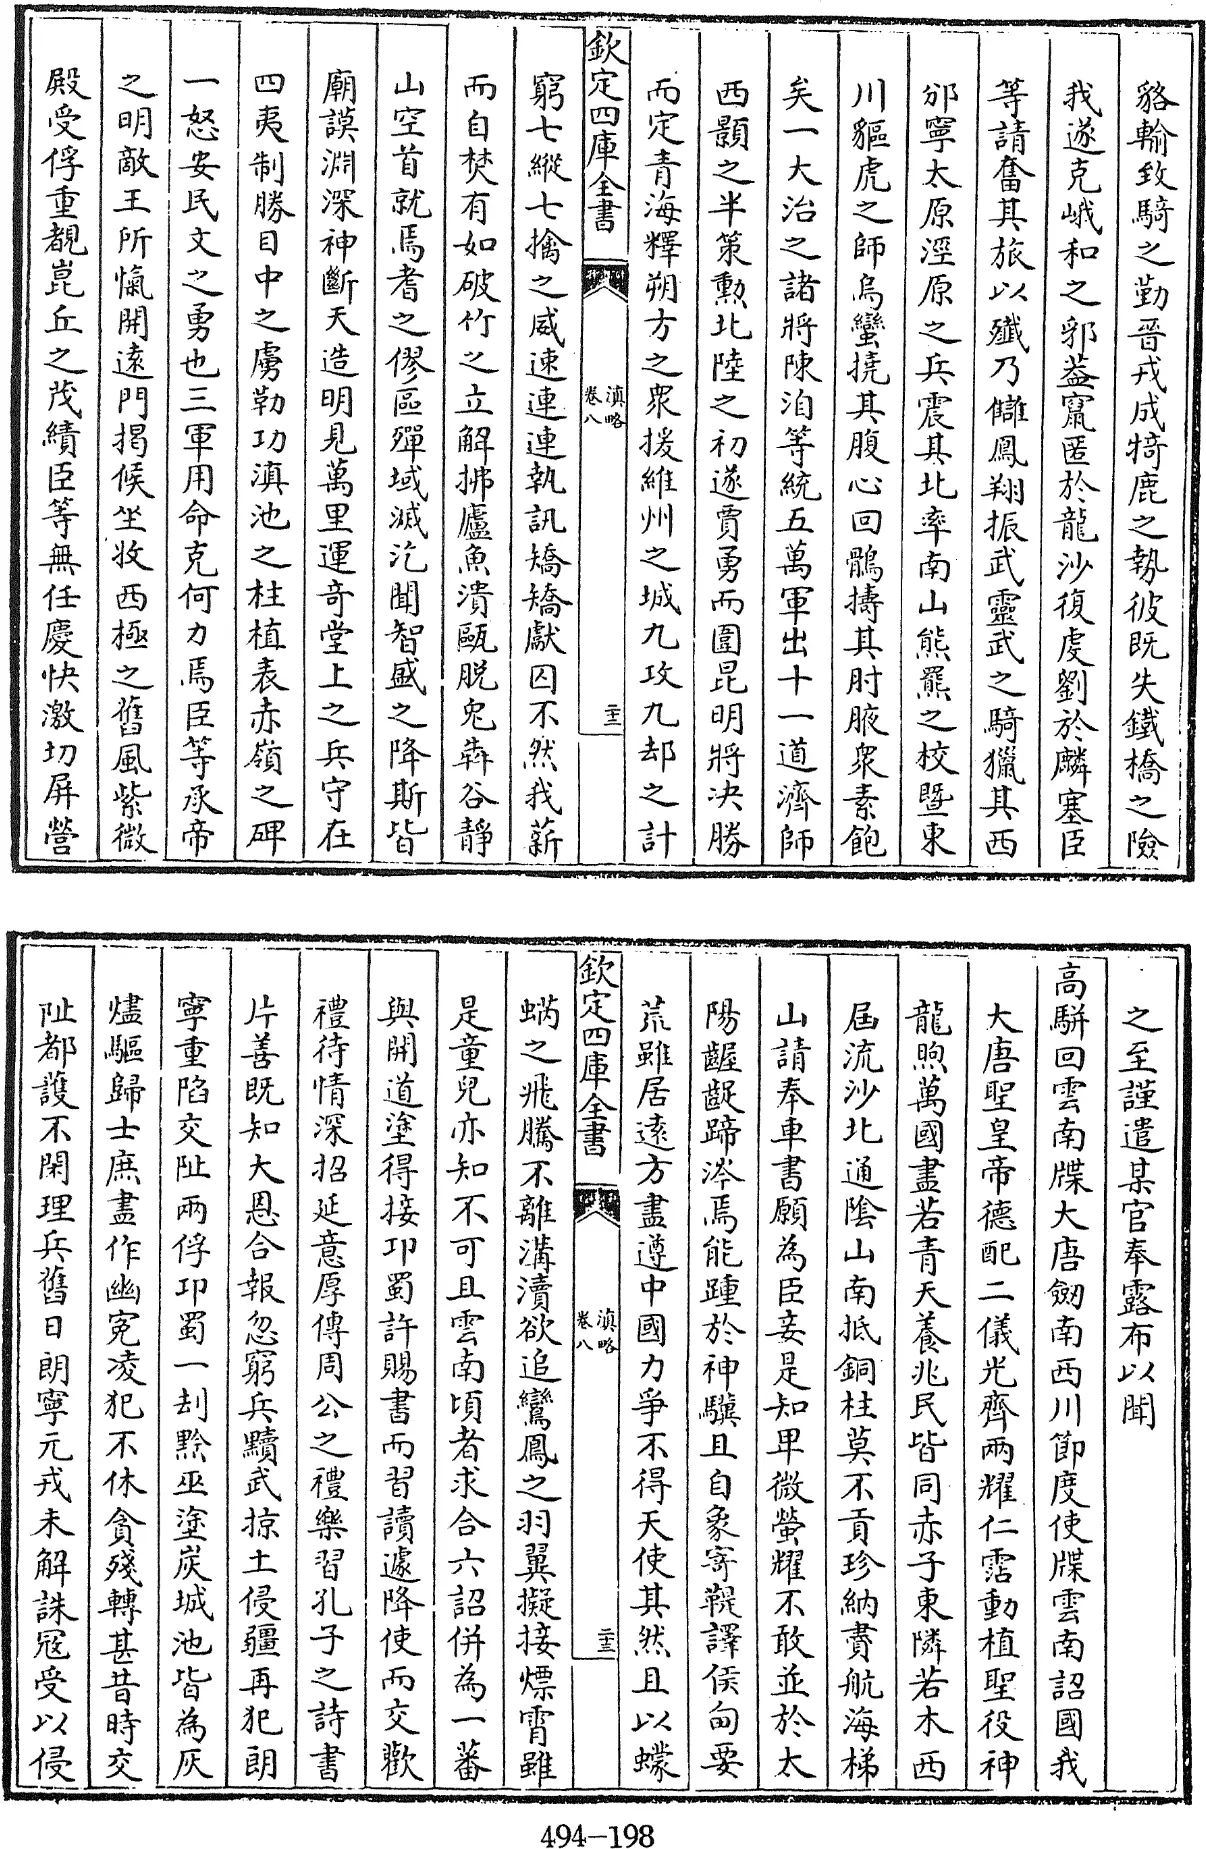 貉輸致騎之勤晉戎成犄鹿之執彼既失鐵橋之險
我遂克峨和之郛葢竄匿於龍沙復虔劉於麟塞臣
等請奮其旅以殲乃讎鳳翔振武靈武之騎獵其西
邠寧太原涇原之兵震其北率南山熊羆之校暨東
川貙虎之師烏蠻撓其腹心回鶻擣其肘腋衆素飽
矣一大治之諸將陳洎等統五萬軍出十一道濟師
西顥之半策勲北陸之初遂賈勇而圍昆明將决勝
而定青海釋朔方之衆援維州之城九攻九却之計
欽定四庫全書
滇略
卷八
二十二
窮七縱七擒之威速連連執訊矯矯獻囚不然我薪
而自焚有如破竹之立解拂廬魚潰甌脱兔犇谷靜
山空首就焉耆之僇區殫域滅汔聞智盛之降斯皆
廟謨淵深神斷天造明見萬里運奇堂上之兵守在
四夷制勝目中之虜勒功滇池之柱植表赤嶺之碑
一怒安民文之勇也三軍用命克何力焉臣等承帝
之明敵王所愾開遠門揭候坐收西極之舊風紫微
殿受俘重覩崑丘之茂績臣等無任慶快激切屏營
之至謹遣某官奉露布以聞
高駢回雲南牒大唐劒南西川節度使牒雲南詔國我
大唐聖皇帝德配二儀光齊兩耀仁霑動植聖役神
龍煦萬國盡若青天養兆民皆同赤子東隣若木西
届流沙北通陰山南抵銅柱莫不貢珍納賮航海梯
山請奉車書願為臣妾是知卑微螢耀不敢並於太
陽齷齪蹄涔焉能踵於神驥且自象寄鞮譯侯甸要
荒雖居遠方盡遵中國力爭不得天使其然且以蠓
欽定四庫全書
滇略
卷八
二十三
螨之飛騰不離溝瀆欲追鸞鳳之羽翼擬接煙霄雖
是童兒亦知不可且雲南頃者求合六詔併為一蕃
與開道塗得接卭蜀許賜書而習讀遽降使而交歡
禮待情深招延意厚傳周公之禮樂習孔子之詩書
片善既知大恩合報忽窮兵黷武掠土侵疆再犯朗
寧重陷交阯兩俘卭蜀一刦黔巫塗炭城池皆為灰
燼驅歸士庶盡作幽寃凌犯不休貪殘轉甚昔時交
阯都護不閑理兵舊日朗寧元戎未解誅冦受以侵
494-198